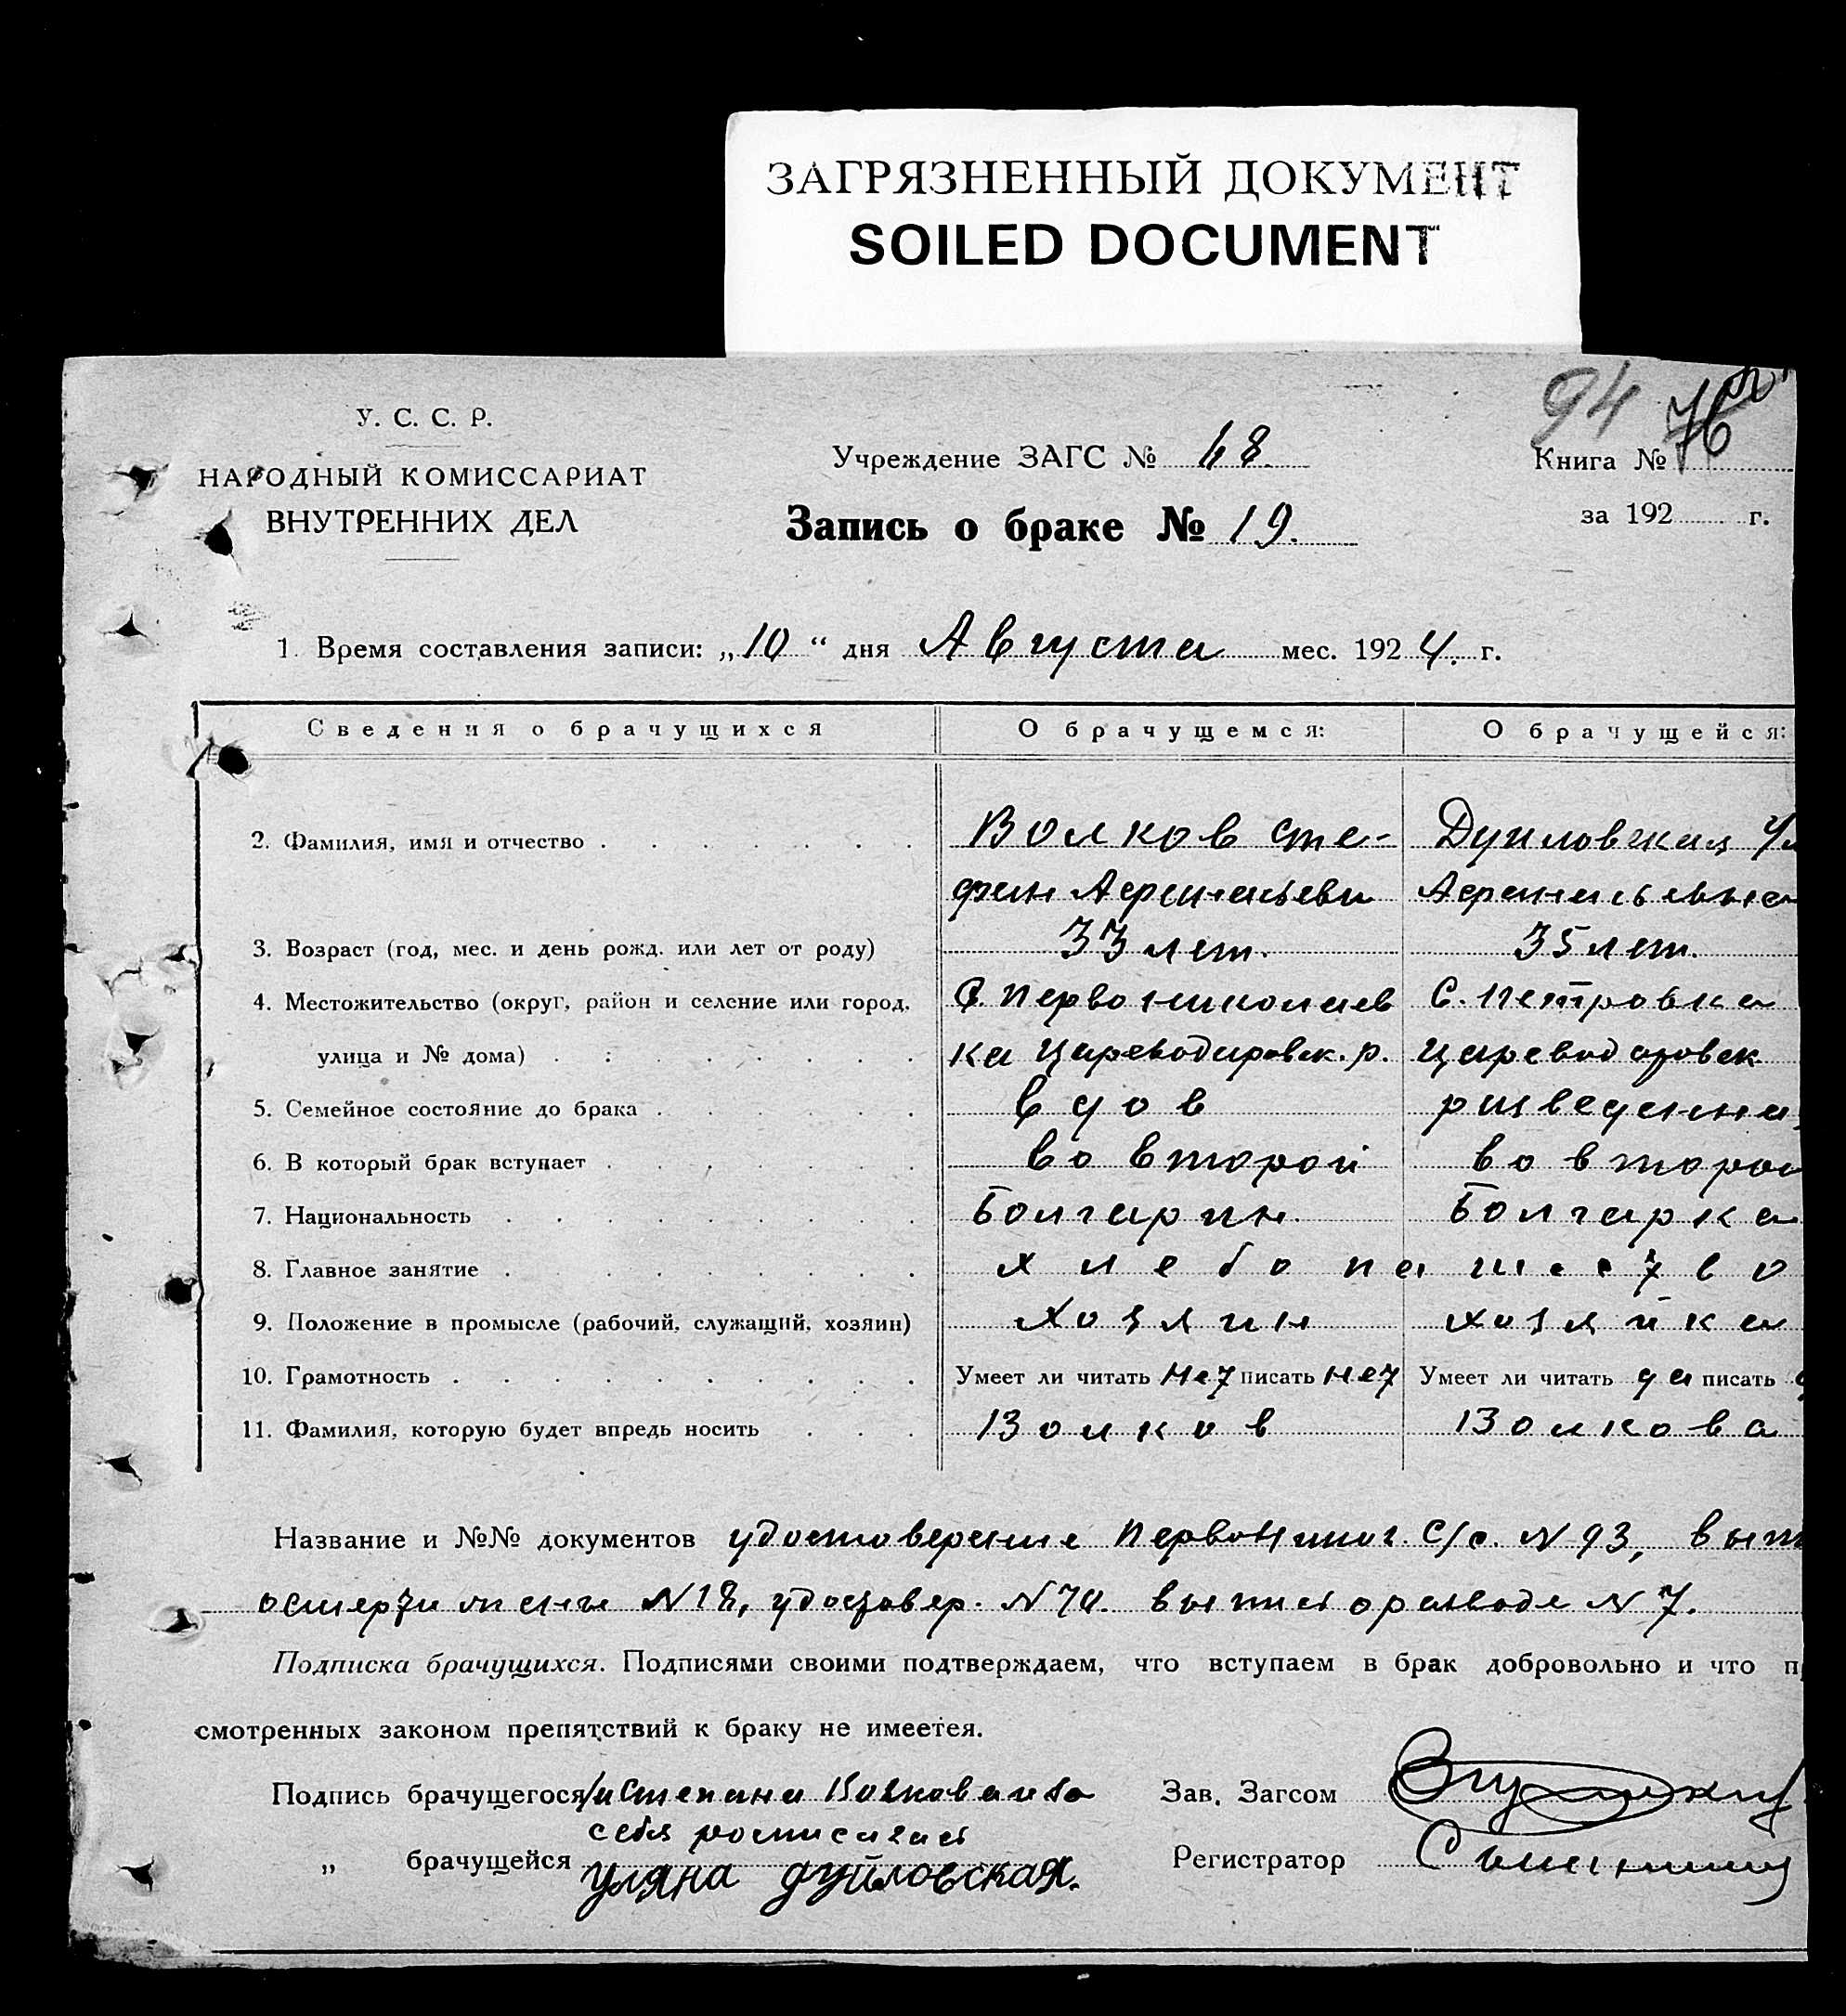 ЗАГРЯЗНЕННЫЙ ДОКУМЕНТ
SOILED DOCUMENT
94 76
У. С. С. Р.
НАРОДНЫЙ КОМИССАРИАТ
ВНУТРЕННИХ ДЕЛ
Учреждение ЗАГС № 48.
Книга №
Запись о браке № 19.
за 192 г.
1. Время составления записи: „10“ дня Августа мес. 1924. г.
Сведения о брачущихся О брачущемся: О брачущейся:
2. Фамилия, имя и отчество Волков Сте- Дуйловская Ул
фан Афанасьеви Афанасьевна
3. Возраст (год, мес. и день рожд. или лет от роду) 33 лет. 35 лет.
4. Местожительство (округ, район и селение или город, С. Первониколаев С. Петровка
улица и № дома) ка Цареводаровск. р. Цареводаровск
5. Семейное состояние до брака вдов разведенна
6. В который брак вступает во второй во второй
7. Национальность Болгарин. Болгарка
8. Главное занятие хлебопашество
9. Положение в промысле (рабочий, служащий, хозяин) хозяин хозяйка
10. Грамотность Умеет ли читать нет писать нет Умеет ли читать да писать
11. Фамилия, которую будет впредь носить Волков Волкова
Название и №№ документов удостоверение Первоникол. С/с. N 93, вып
о смерти жены N 18, удостовер. N 70. выпись о разводе N 7.
Подписка брачущихся. Подписями своими подтверждаем, что вступаем в брак добровольно и что п
смотренных законом препятствий к браку не имеется.
Подпись брачущегося Волкова Зав. Загсом
себя росписалась
„ брачущейся уляна дуйловская. Регистратор